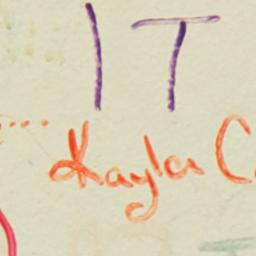 IT
Kayla C